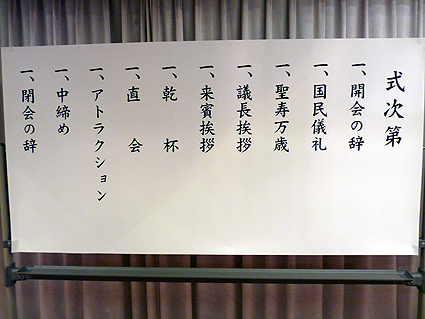 式次第
一、開会の辞
一、国民儀礼
一、聖寿万歳
一、議長挨拶
一、来賓挨拶
一、乾杯
一、直会
一、アトラクション
一、中締め
一、閉会の辞